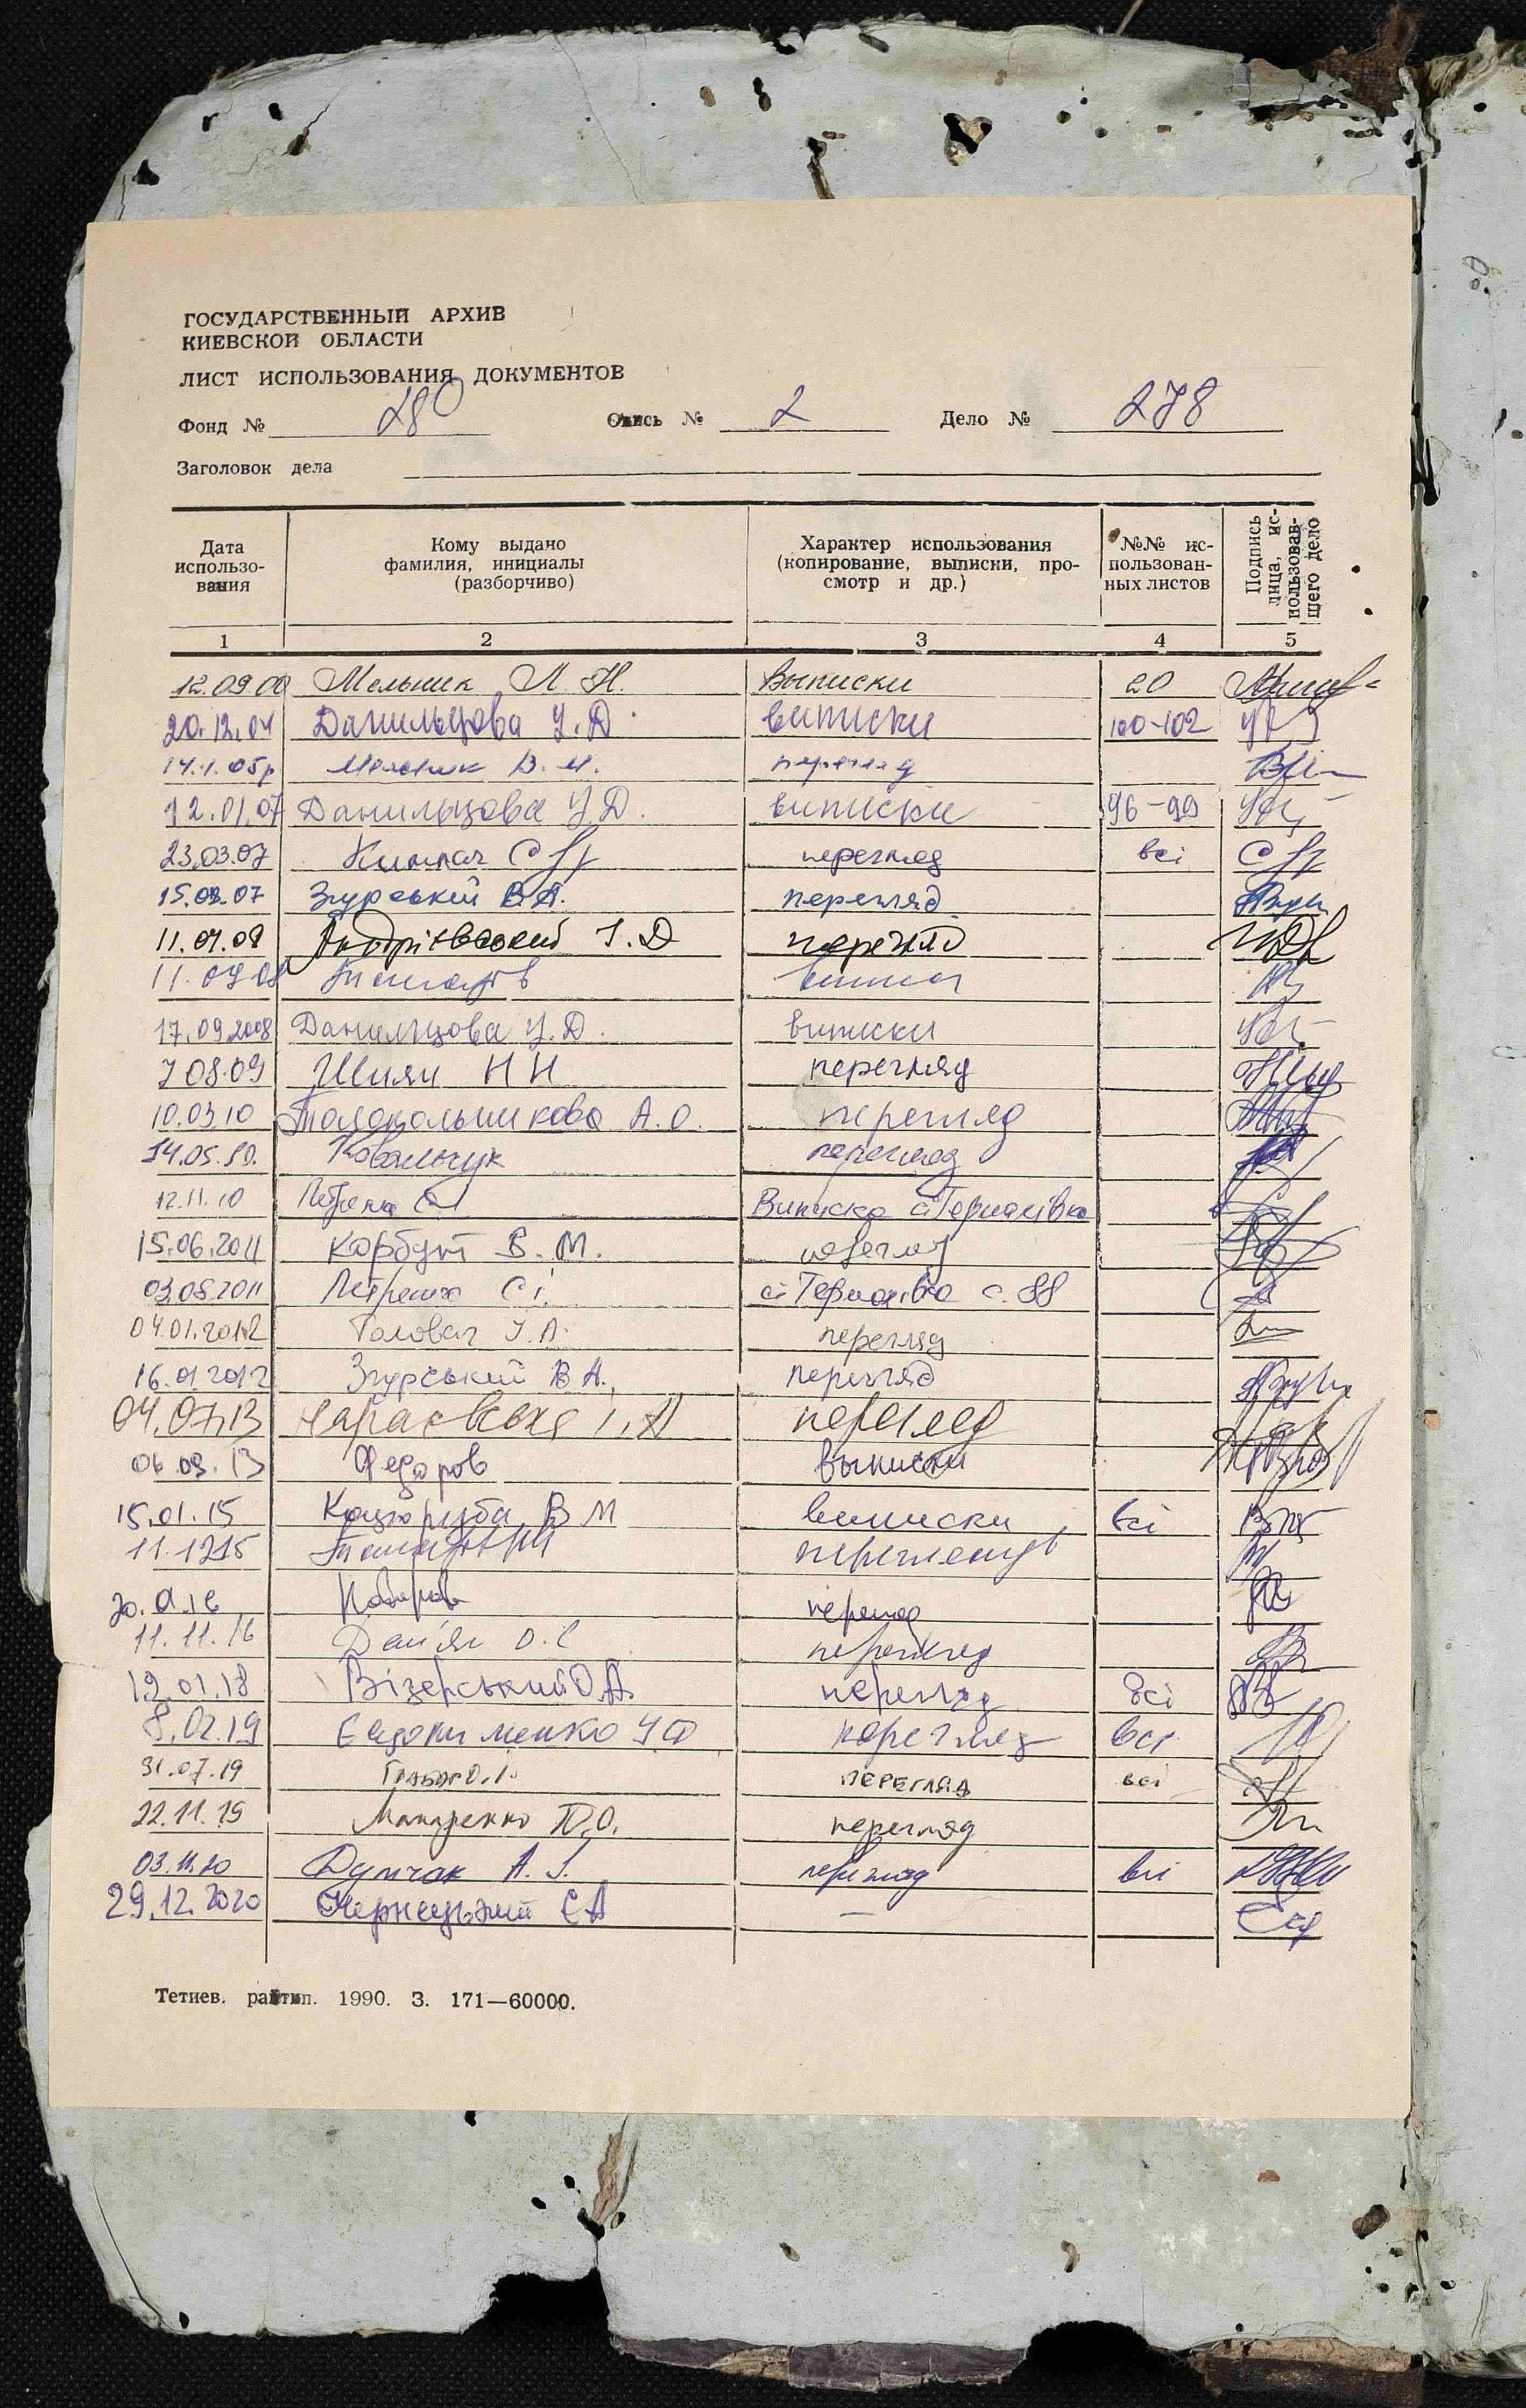 ГОСУДАРСТВЕННЫЙ АРХИВ
КИЕВСКОЙ ОБЛАСТИ
ЛИСТ ИСПОЛЬЗОВАНИЯ ДОКУМЕНТОВ
Фонд № 280 Опись № 2 Дело № 278
Заголовок дела
Дата использо-вания
Кому выдано фамилия, инициалы (разборчиво)
Характер использования (копирование, выписки, про-смотр и др.)
№№ ис-пользован-ных листов
Подпись лица, ис-пользовав-щего дело
1 2 3 4 5
12.09.00 Мельник Л. Н. Выписки 20
20.12.04 Данильцова У.Д. виписки 100-102
14.1.05р В. М. перегляд
12.01.07 Данильцова У.Д. виписки 96-99
23.03.07 перегляд всі
15.08.07 Згурський В.А. перегляд
11.07.08 Андрієвський І.Д перегляд
11.07.08
17.09.2008 Данильцова У.Д. виписки
7 08.09 Шиян Н Н перегляд
10.03.10 Толокольникова А.О. перегляд
14.05.10. Ковальчук перегляд
12.11.10 Виписка
15.06.2011 Корбут В. М. перегляд
03.08.2011 Петренко С і. с. 88
04.01.2012 Головач І.А. перегляд
16.01.2012 Згурський В А. перегляд
04.07.13 перегляд
06.09.13 Федоров выписки
15.01.15 Кацюруба В М виписки всі
11.12 15
20.01.16 перегляд
11.11.16 Дем'ян О.С перегляд
19.01.18 Візерський О.А. перегляд всі
8.02.19 Євдокименко перегляд всі
31.07.19 О.І. ПЕРЕГЛЯД всі
22.11.19 Макаренко П.О. перегляд
03.11.20 Думчак А. І. перегляд всі
29.12.2020 Чернецький Є А —
Тетиев. райтип. 1990. З. 171—60000.